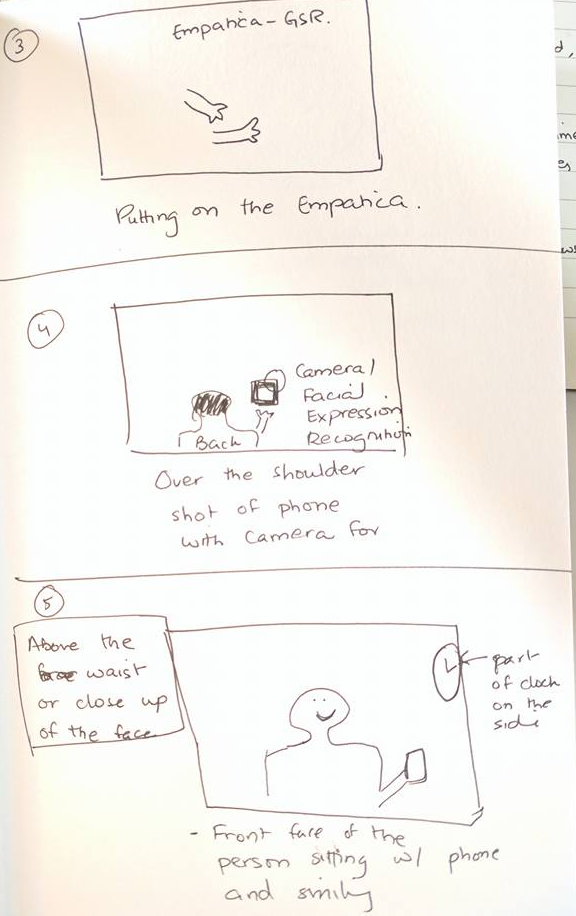 3
Empatica - GSR.
Putting on the Empatica.
4
Camera/
Facial
Expression
Recognition
Back
Over the shoulder
shot of phone
with Camera for
5
Above the
waist
or close up
of the face
part
of clock
on the
side
- Front face of the
person sitting w/ phone
and smiling